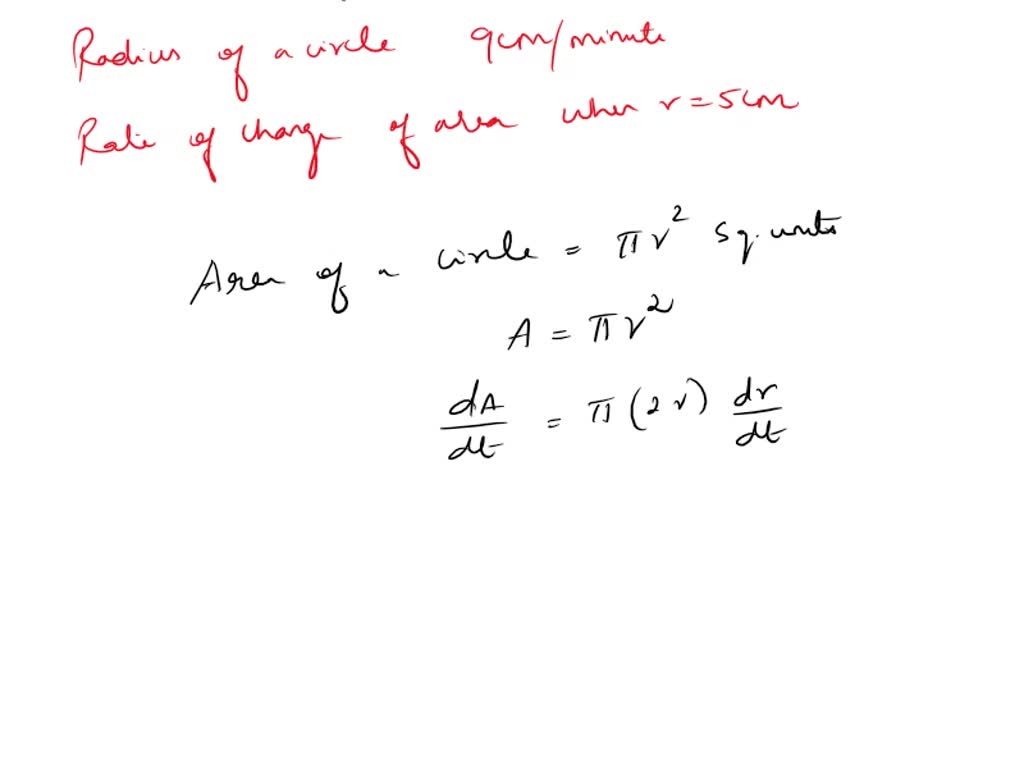 Radius of a circle 9cm/minute
Rate of change of area when r=5cm
Area of a circle = πr² sq.units
A = πr²
dA/dt = π(2r) dr/dt